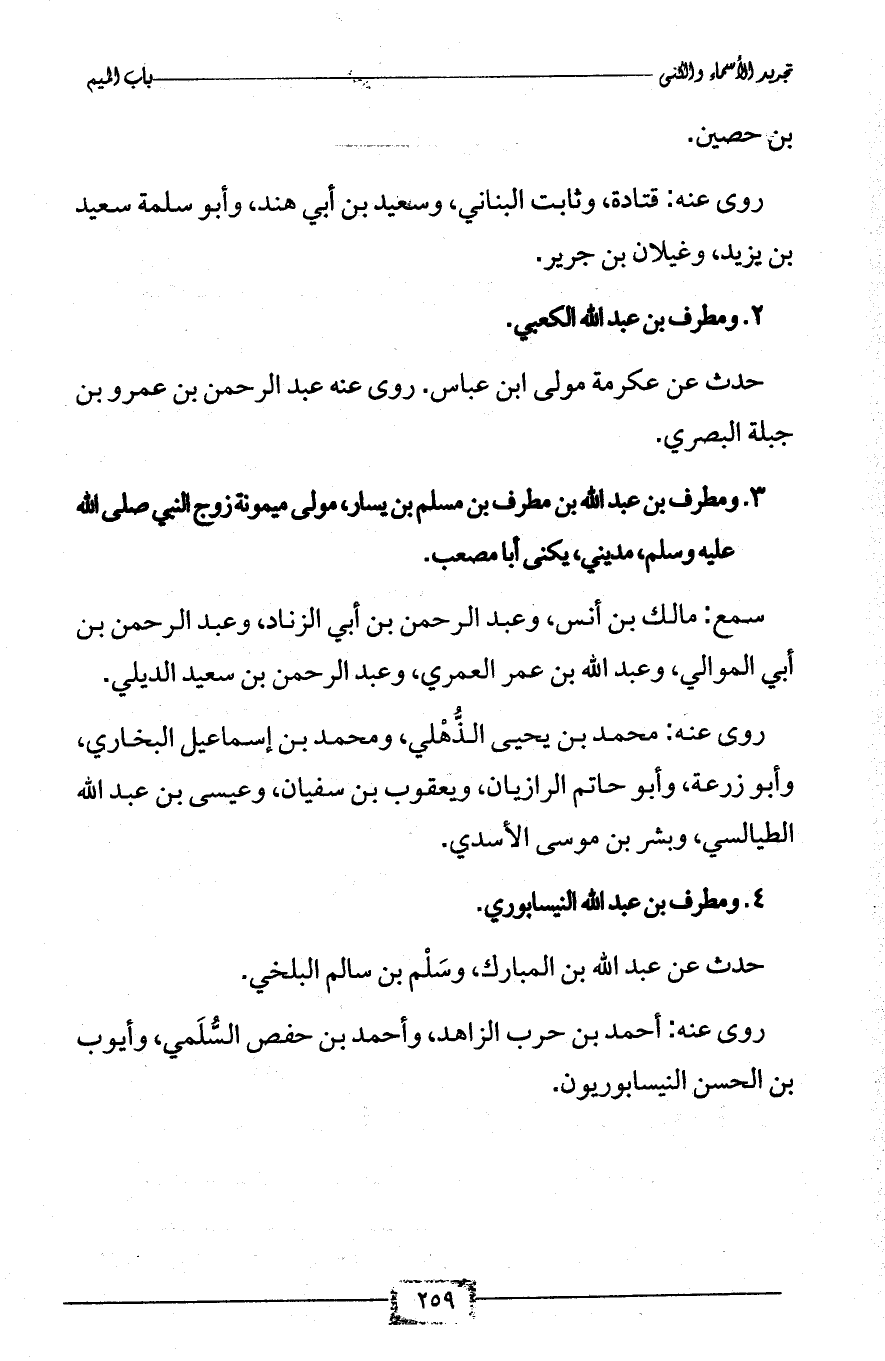 تجريد الأسماء والكنى باب الميم
بن حصين.
روى عنه: قتادة، وثابت البناني، وسعيد بن أبي هند، وأبو سلمة سعيد
بن يزيد، وغيلان بن جرير.
٢. ومطرف بن عبد الله الكعبي.
حدث عن عكرمة مولى ابن عباس. روى عنه عبد الرحمن بن عمرو بن
جبلة البصري.
٣. ومطرف بن عبد الله بن مطرف بن مسلم بن يسار، مولى ميمونة زوج النبي صلى الله
عليه وسلم، مديني، يكنى أبا مصعب.
سمع: مالك بن أنس، وعبد الرحمن بن أبي الزناد، وعبد الرحمن بن
أبي الموالي، وعبد الله بن عمر العمري، وعبد الرحمن بن سعيد الديلي.
روى عنه: محمد بن يحيى الذُّهْلي، ومحمد بن إسماعيل البخاري،
وأبو زرعة، وأبو حاتم الرازيان، ويعقوب بن سفيان، وعيسى بن عبد الله
الطيالسي، وبشر بن موسى الأسدي.
٤. ومطرف بن عبد الله النيسابوري.
حدث عن عبد الله بن المبارك، وسَلْم بن سالم البلخي.
روى عنه: أحمد بن حرب الزاهد، وأحمد بن حفص السُّلَمي، وأيوب
بن الحسن النيسابوريون.
٢٥٩